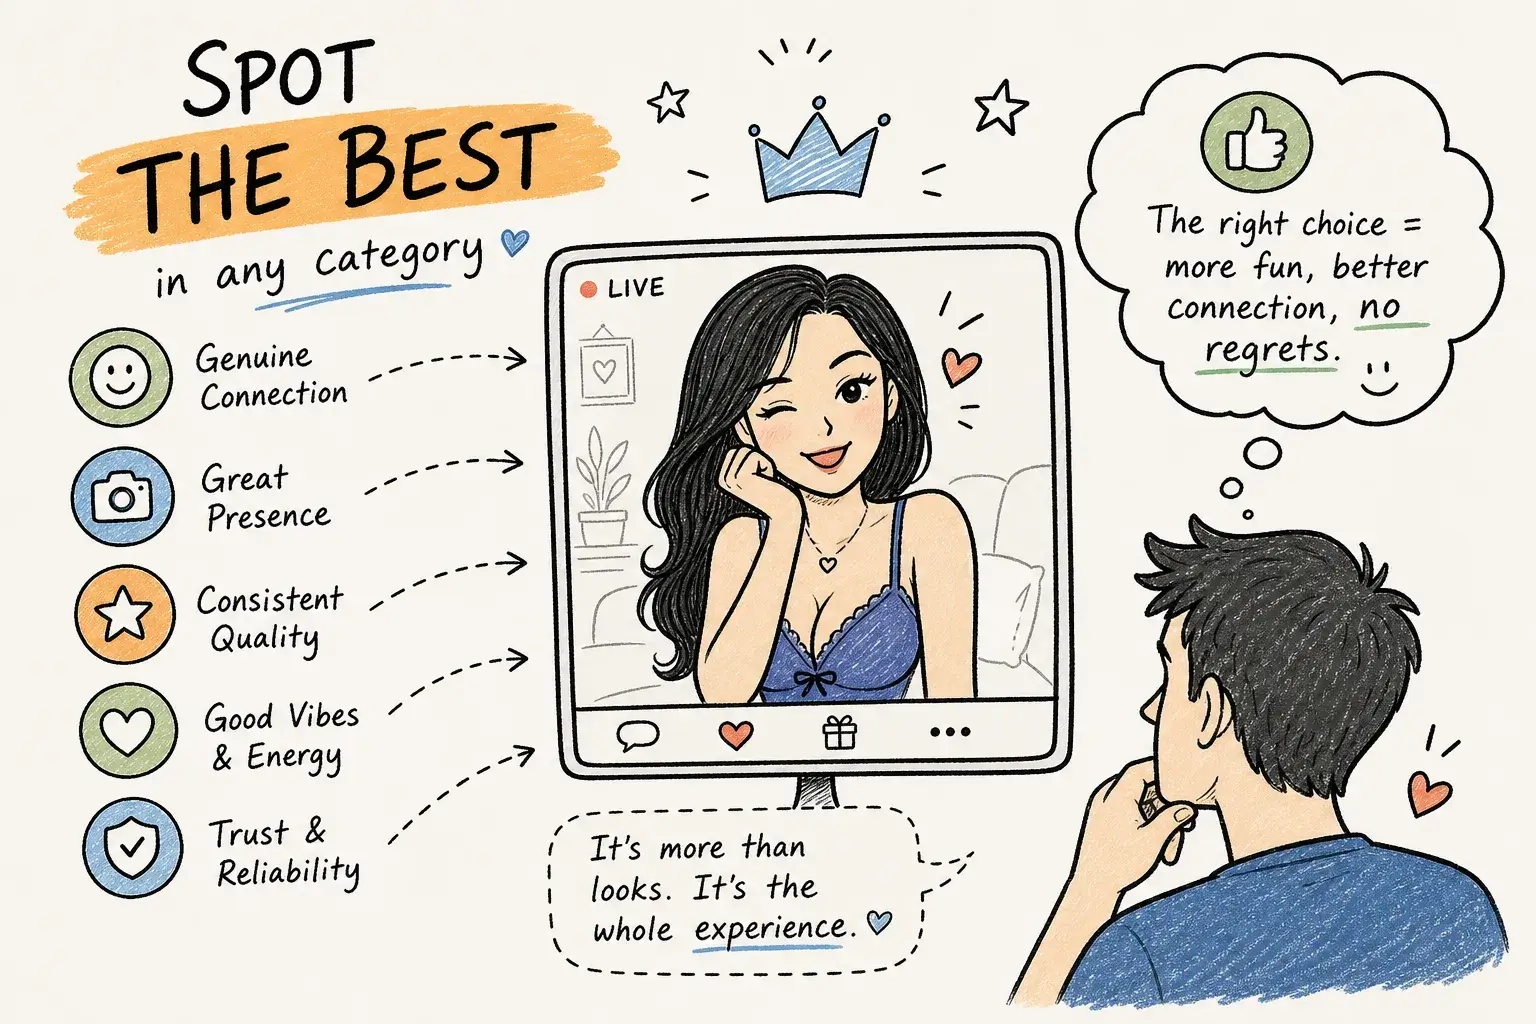 SPOT
THE BEST
in any category
Genuine
Connection
Great
Presence
Consistent
Quality
Good Vibes
& Energy
Trust &
Reliability
LIVE
It's more than
looks. It's the
whole experience.
The right choice =
more fun, better
connection, no
regrets.